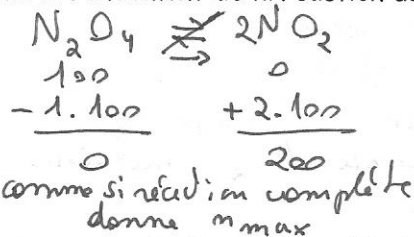 N₂O₄ ⇌ → 2NO₂
100 0
- 1.100 + 2.100
0 200
comme si réaction complète
donne n max